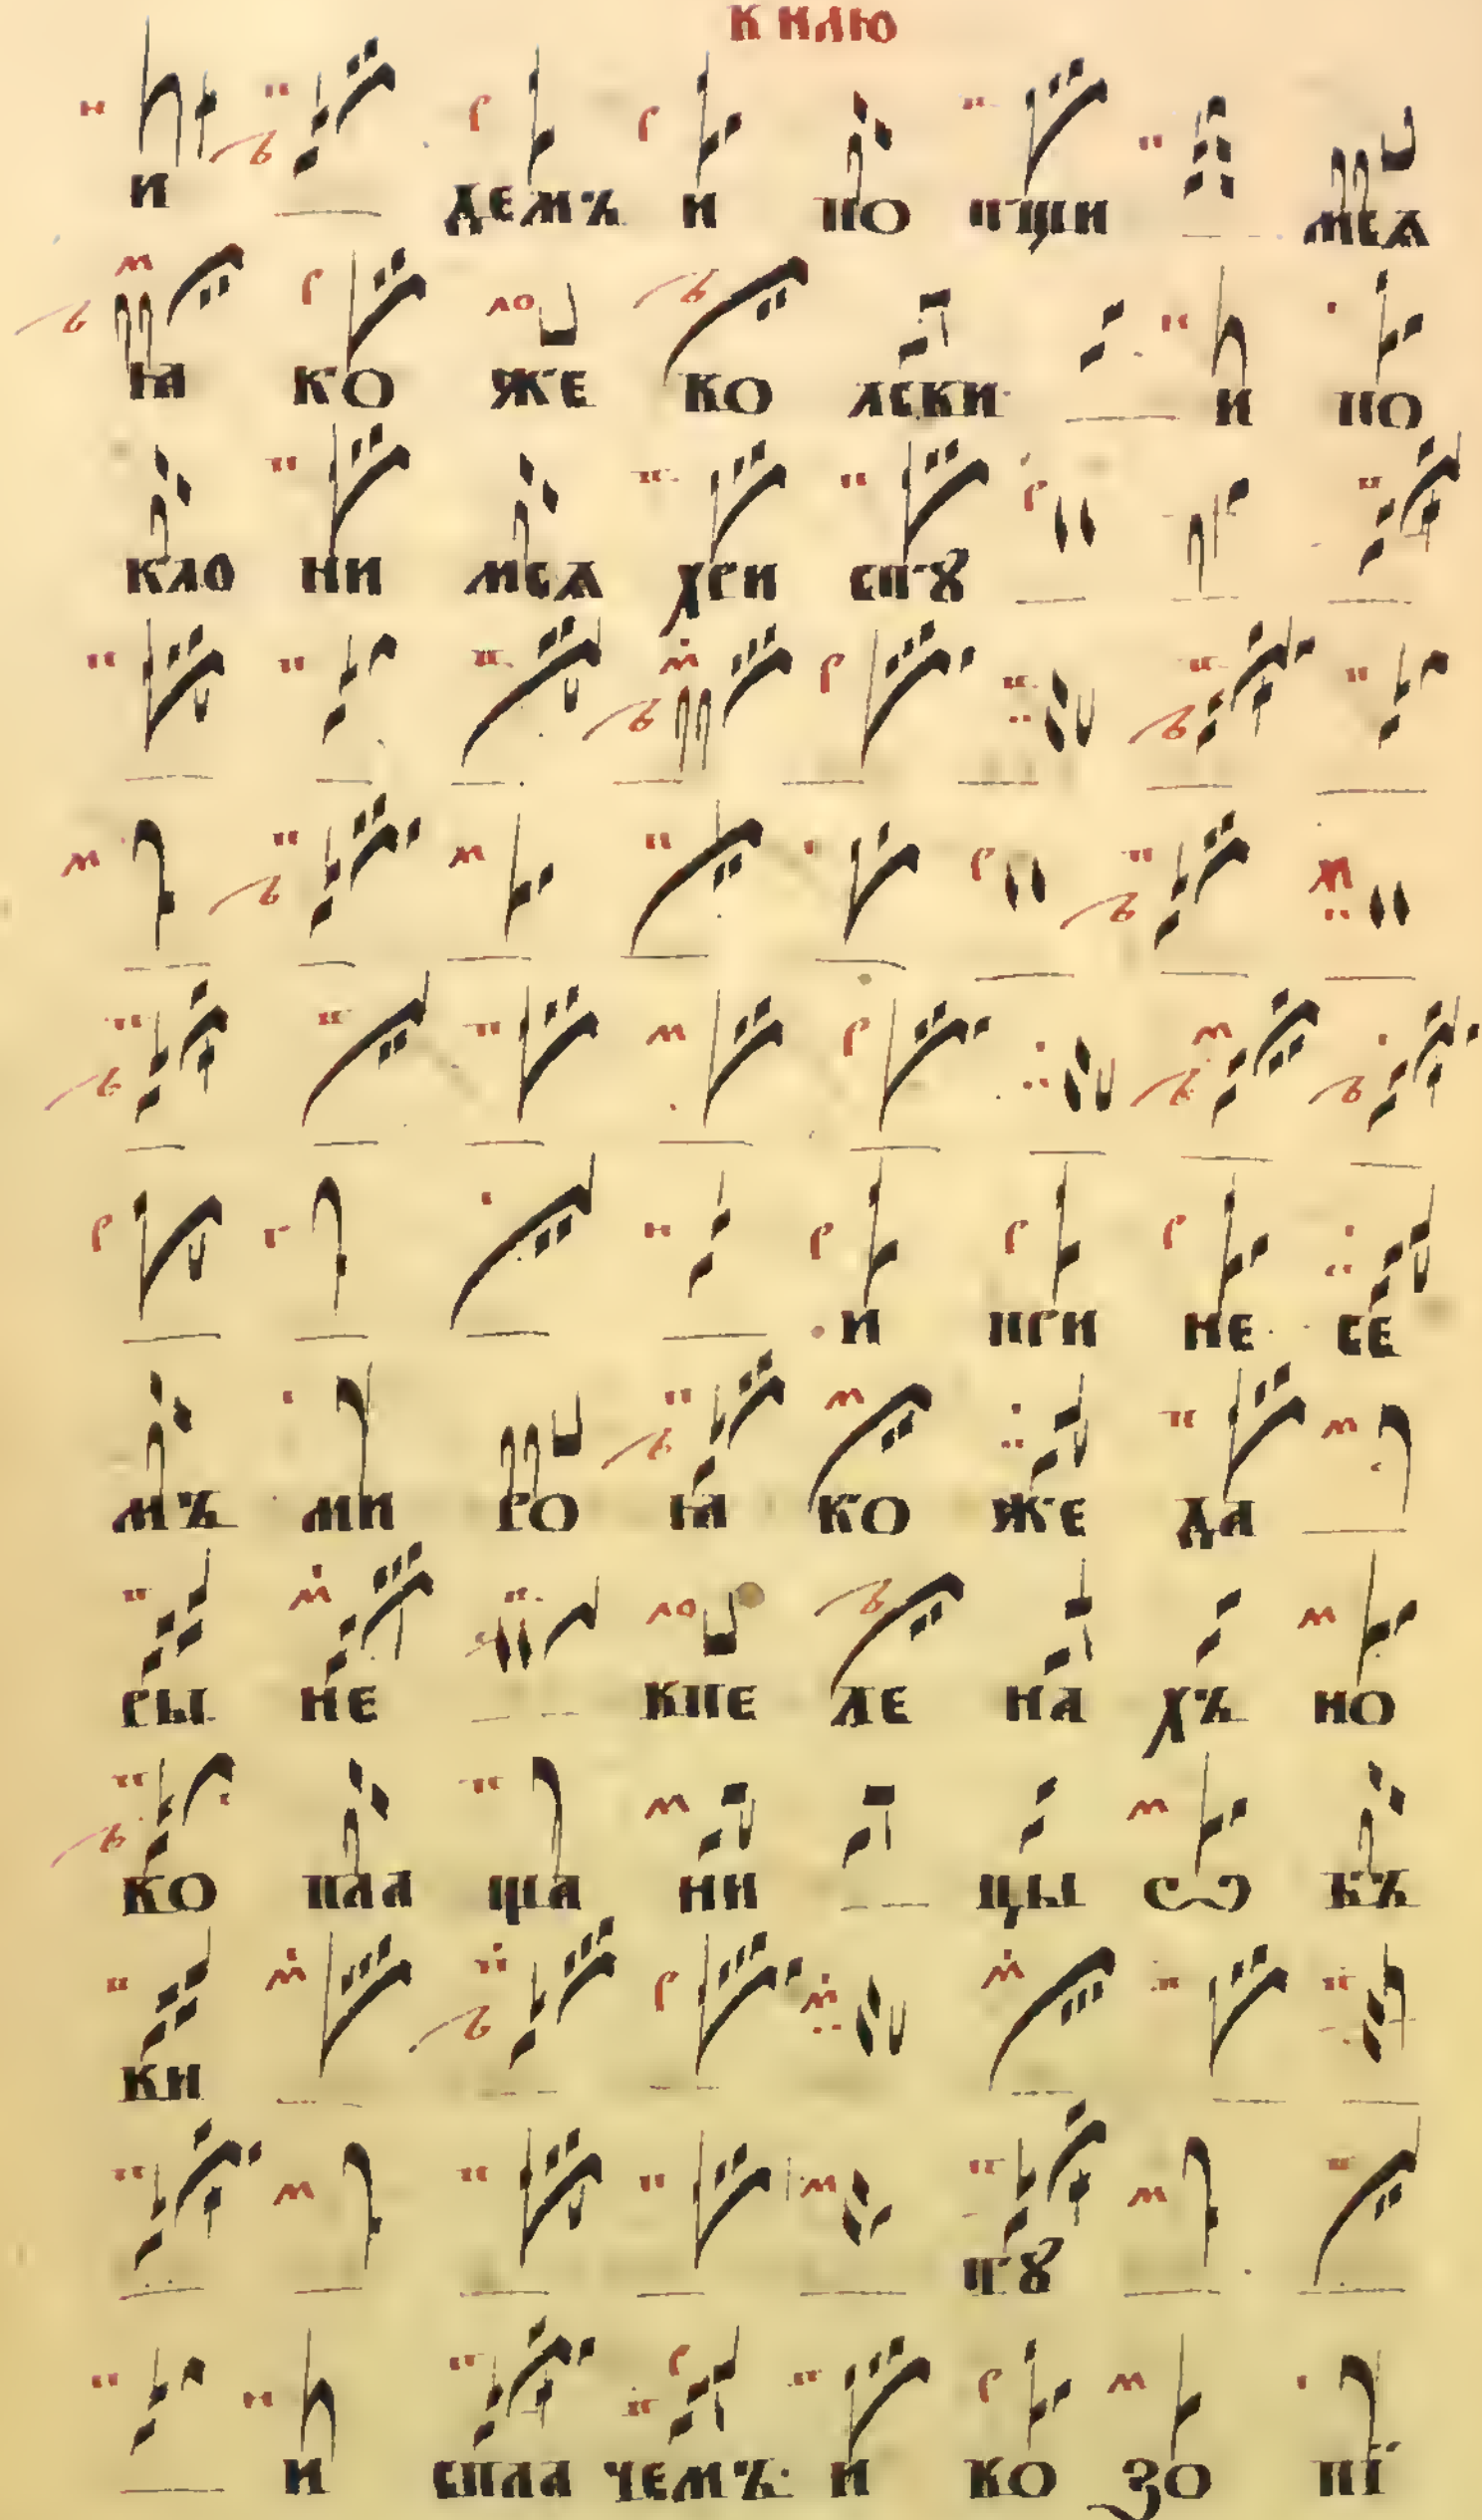 В НЛЮ
И ДЕМЪ И ПО ТЩИ МСѦ
Ꙗ КО ЖЕ ВО ЛСВИ И ПО
КЛО НИ МСѦ ХРИ СТꙊ
И ПРИ НЕ СЕ
МЪ МИ РО Ꙗ КО ЖЕ ДА
РЫ НЕ ВПЕ ЛЕ НА ХЪ НО
ВО ПЛА ЩА НИ ЦЫ Ѡ БЪ
ВИ
ТꙊ
И СПЛА ЧЕМЪ И ВО ЗО ПІ